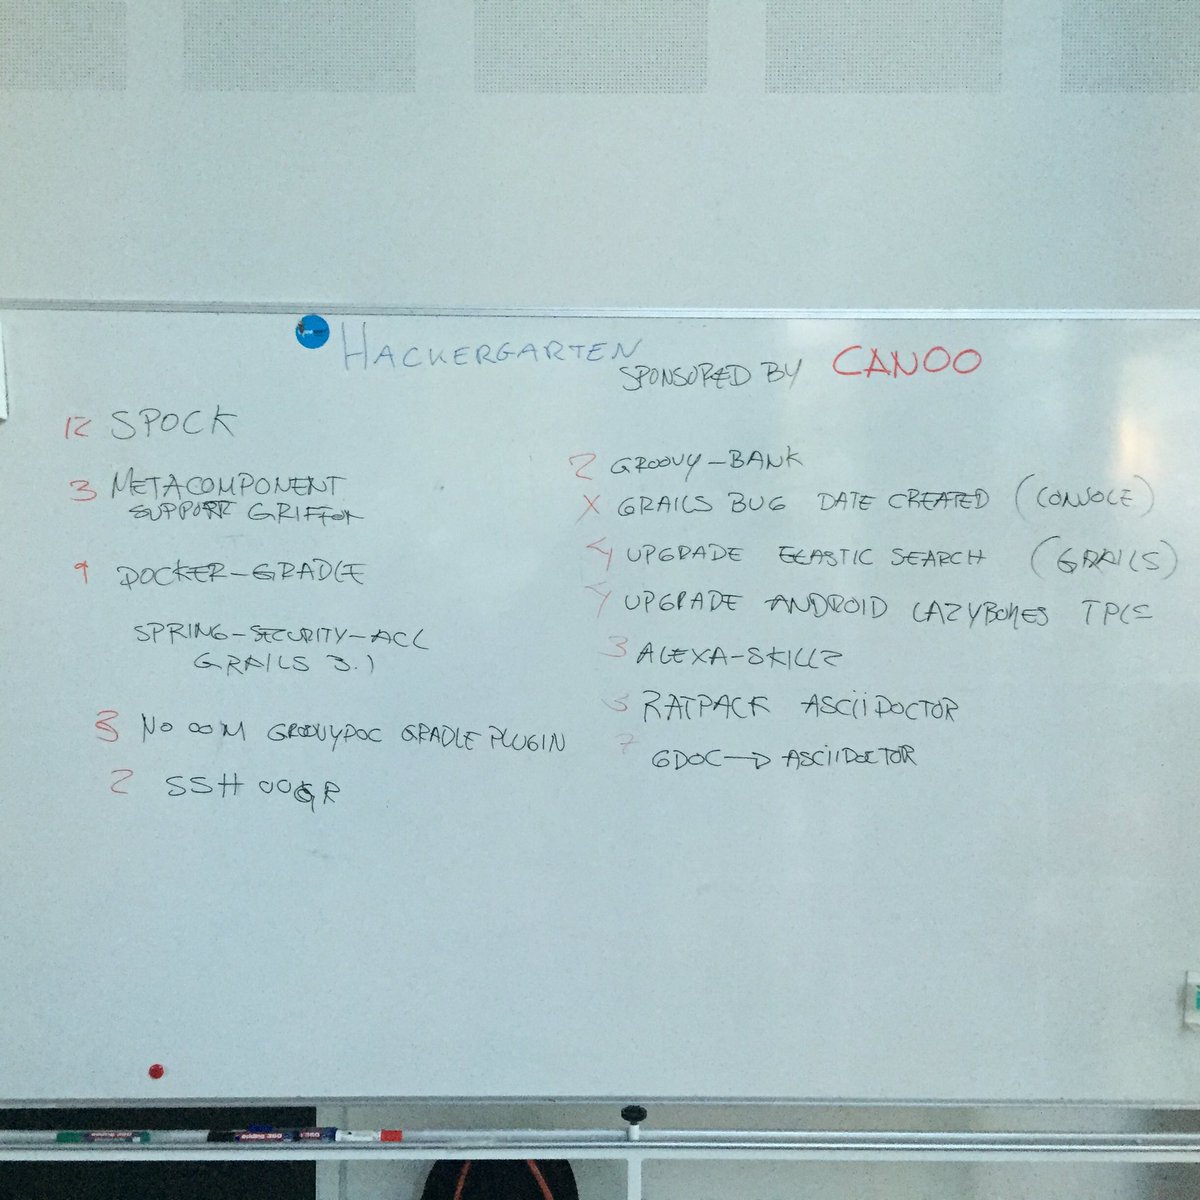 HACKERGARTEN
SPONSORED BY CANOO
12 SPOCK
3 METACOMPONENT
SUPPORT GRIFFON
9 DOCKER-GRADLE
SPRING-SECURITY-ACL
GRAILS 3.1
3 NO OOM GROOVYDOC GRADLE PLUGIN
2 SSH OOGR
2 GROOVY-BANK
X GRAILS BUG DATE CREATED (CONSOLE)
4 UPGRADE ELASTIC SEARCH (GRAILS)
4 UPGRADE ANDROID LAZYBONES TPLS
3 ALEXA-SKILLZ
RATPACK ASCIIDOCTOR
7 GDOC→ASCIIDOCTOR
edding 360